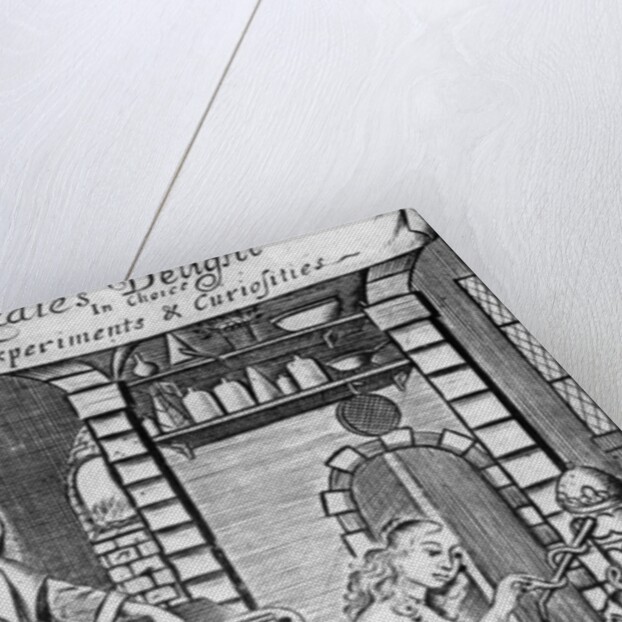 Delight
In Choice
Experiments & Curioſities